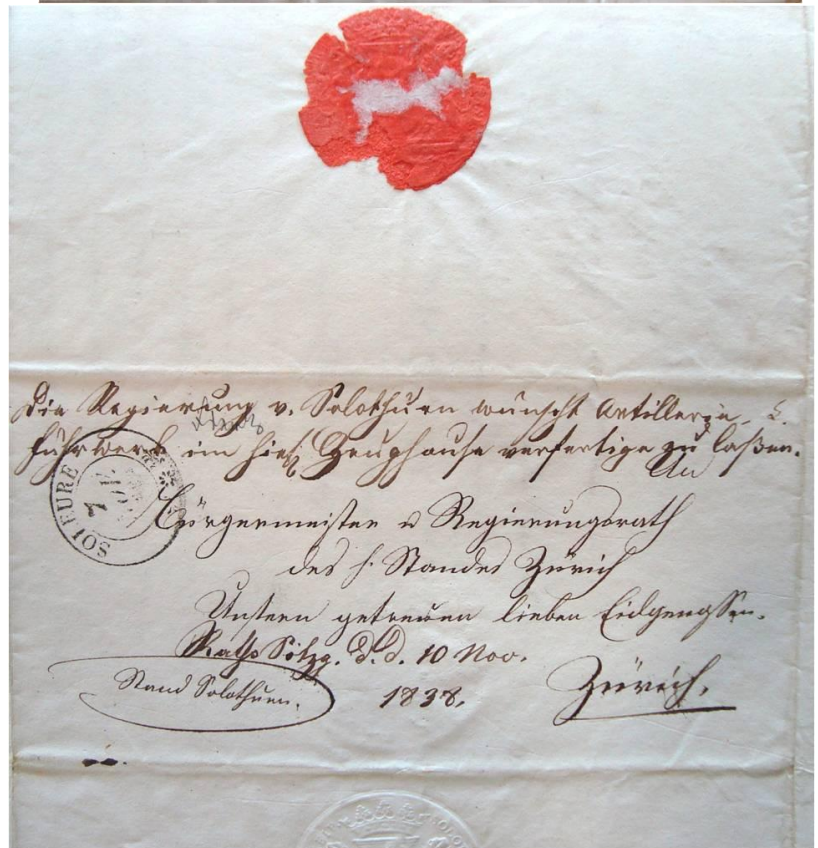 Die Regierung v. Solothurn wünscht Artillerie-
Führwerk im hies. Zeughause verfertige zu laßen.
An
Bürgermeister u Regierungsrath
des h. Standes Zürich
Unsern getreuen lieben Eidgenossen.
Raths Sitzg. d.d. 10 Nov.
1838.
Stand Solothurn.
Zürich.
SOLEURE
7